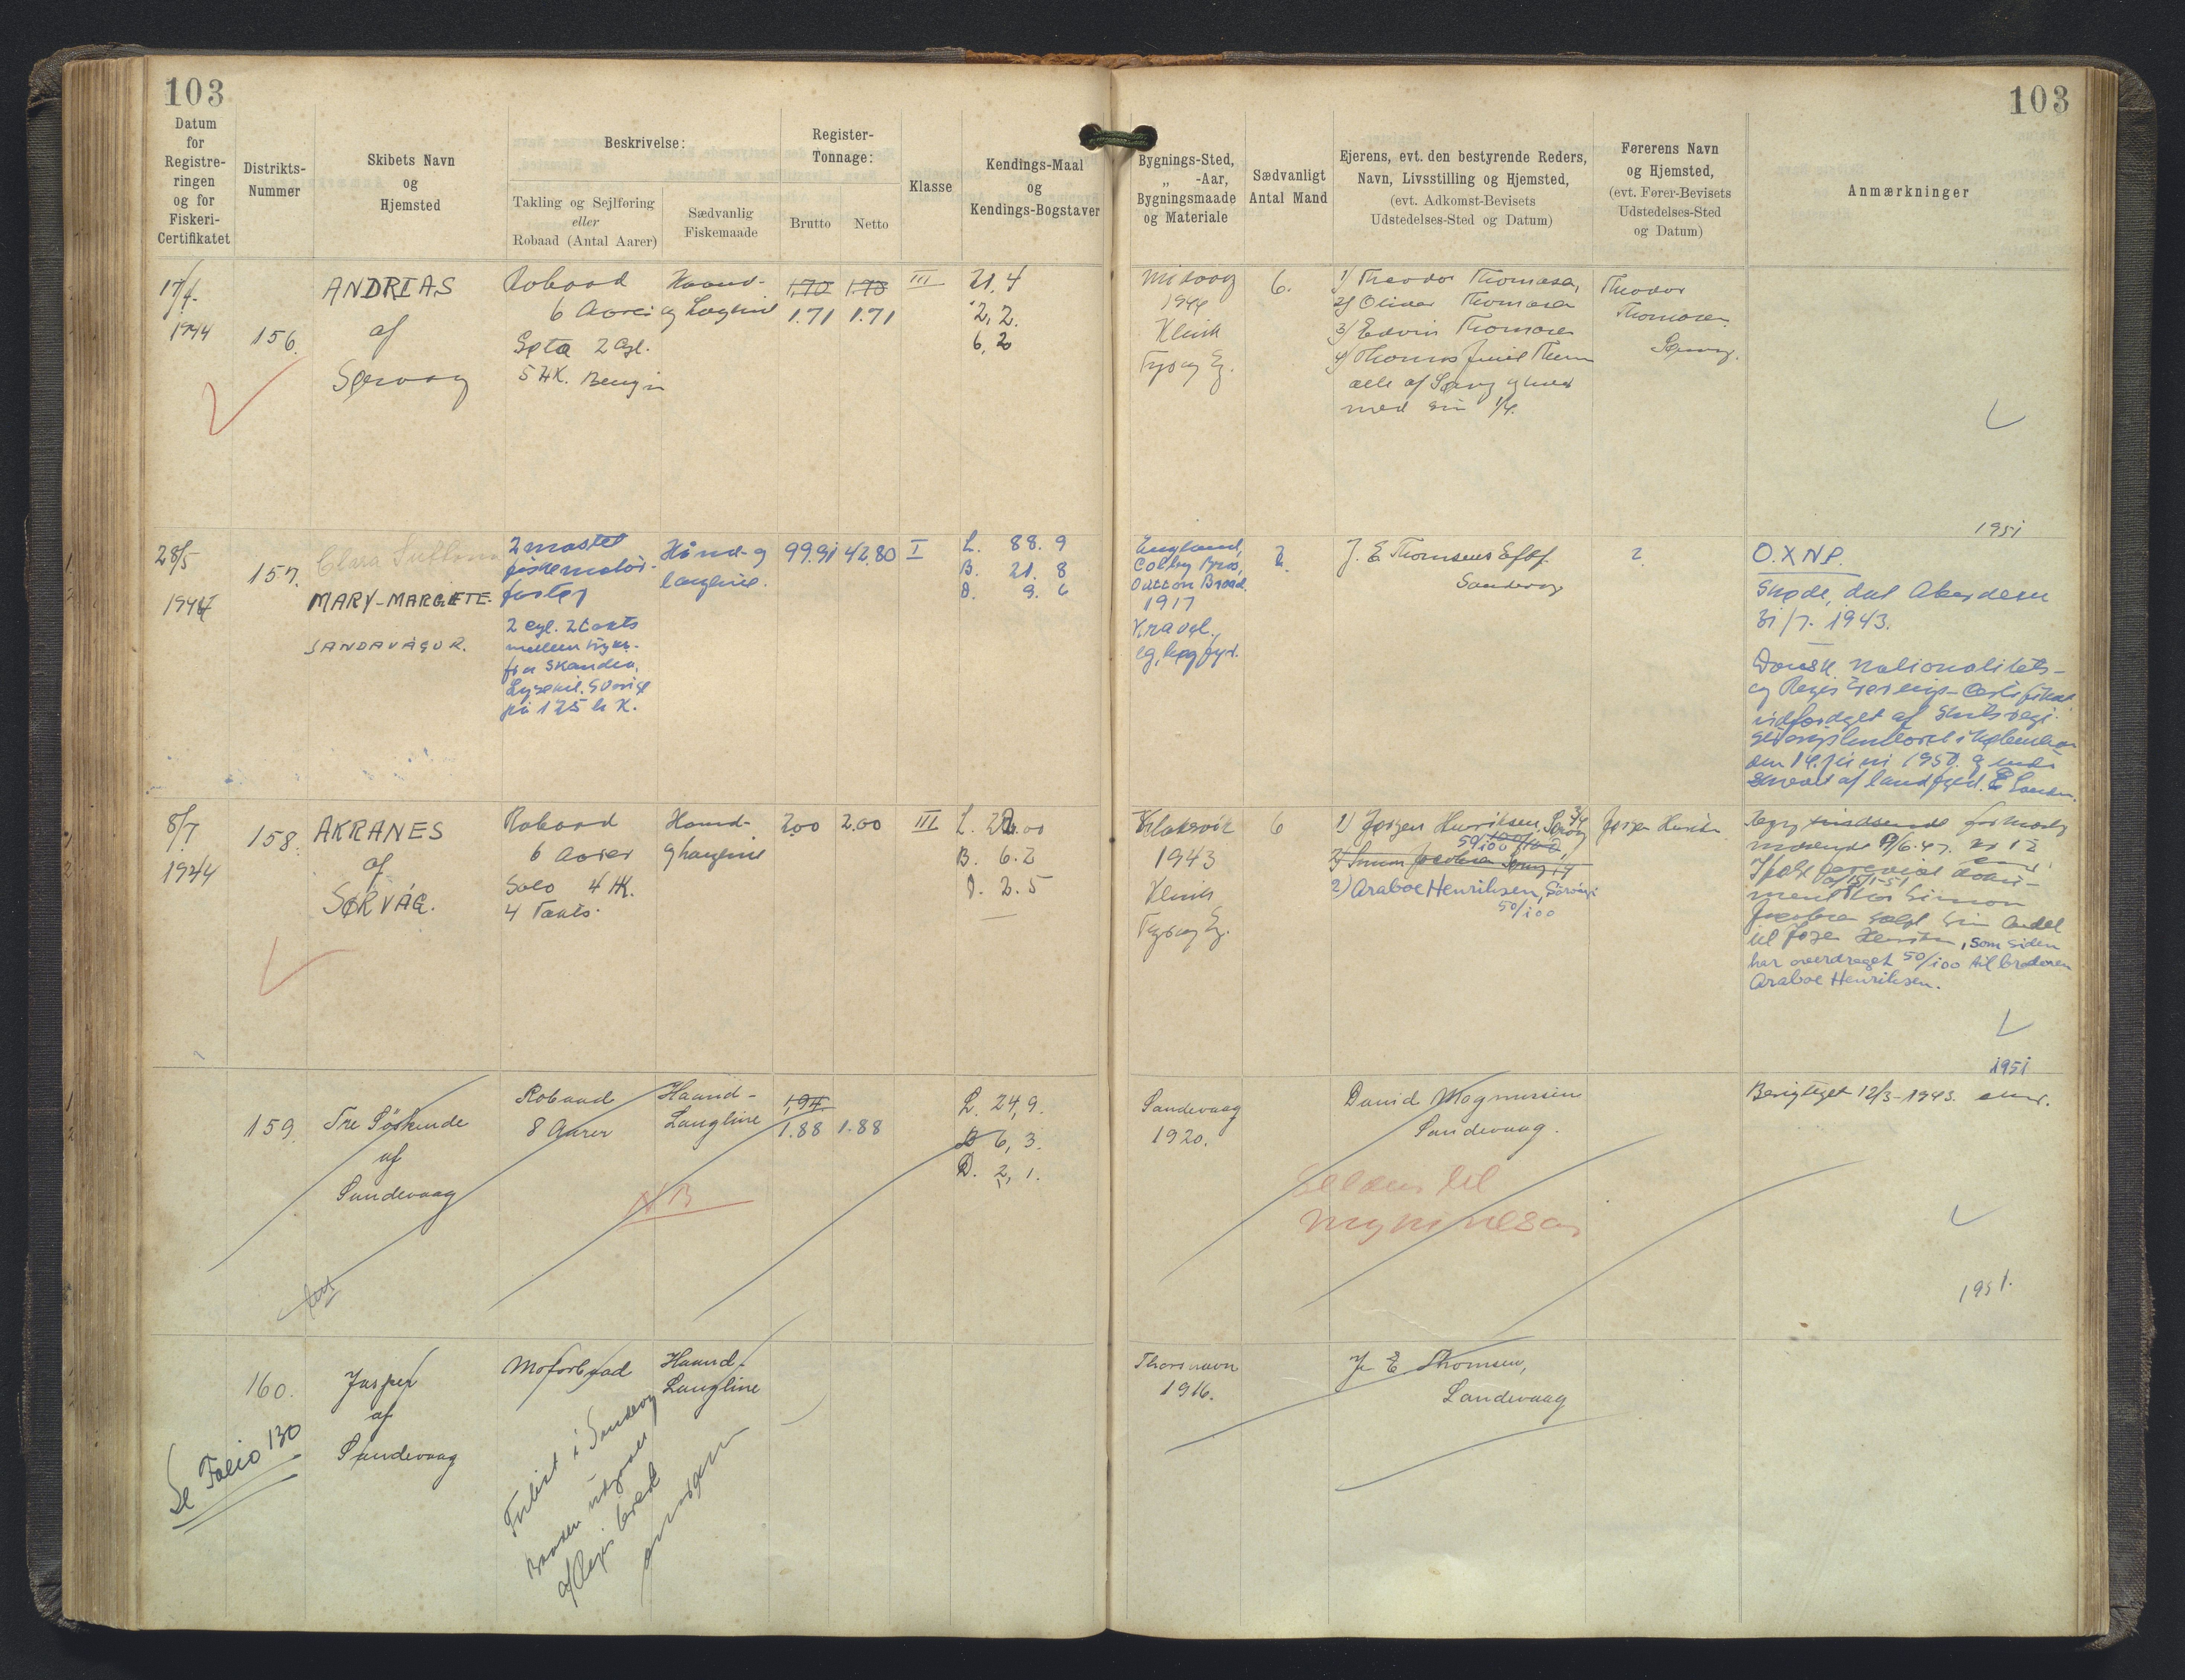 103
103
Datum
for
Registre-
ringen
og for
Fiskeri-
Certifikatet
Distrikts-
Nummer
Skibets Navn
og
Hjemsted
Beskrivelse:
Takling og Sejlføring
eller
Robaad (Antal Aarer)
Sædvanlig
Fiskemaade
Register-
Tonnage:
Brutto
Netto
Klasse
Kendings-Maal
og
Kendings-Bogstaver
Bygnings-Sted,
„ -Aar,
Bygningsmaade
og Materiale
Sædvanligt
Antal Mand
Ejerens, evt. den bestyrende Reders,
Navn, Livsstilling og Hjemsted,
(evt. Adkomst-Bevisets
Udstedelses-Sted og Datum)
Førerens Navn
og Hjemsted,
(evt. Fører-Bevisets
Udstedelses-Sted
og Datum)
Anmærkninger
17/4.
1944
156.
ANDRIAS
af
Sørvaag
Robaad
6 Aarer
Søta 2 Cyl.
5 HK. Benzin
Haand-
og Langline
1,70
1.73
1.71
1.71
III
21,4
2,2.
6,20
1944
Klink
Fyr og Eg.
6.
1) Theodor Thomasen,
2) Oliver Thomasen
3) Edvin Thomasen
4) Thomas
alle af
med sin 1/4.
Theodor
Thomasen
28/5
1944
157.
Clara
MARY-MARGRETE.
SANDAVÁGUR.
2 mastet
fiskemotor-
fartøj
2 cyl. 2 takts
fra Skandia,
Lysekil, Sverige
på 125 h K.
Hånd- og
langline.
99.91
42.80
I
L. 88. 9
B. 21. 8
D. 9. 6
England,
Colby Bros,
Oulton Broad.
1917
Kravel.,
eg, bøg, fyr.
?
J. E. Thomsens Eftf.
Sandevog
?
1951
O.X.N.P.
Skøde, dat Aberdeen
31/7. 1943.
Dansk Nationalitets-
og Registrerings-Certifikat
udfærdiget af Skibsregi-
streringskontoret i København
den 14. juni 1950.
8/7
1944
158.
AKRANES
af
SØRVÁG.
Robaad
6 Aarer
Solo 4 HK.
4 Takts.
Haand-
og Langline
2,00
2.00
III
L. 22.00
B. 6.2
D. 2.5
Klaksvik
1943
Klink
Fyr og Eg.
6
1) Jørgen Henriksen,
50/100
2) Simun Jacobsen
2) Araboe Henriksen, Sörvági
50/100
Jørgen Henriksen
9/6.47.
15/1-51
Simon
Jacobsen solgt sin Andel
til Jørgen Henriksen, som siden
har overdraget 50/100 til broderen
Araboe Henriksen.
1951
159.
Tre Söskende
af
Sandevaag
Robaad
8 Aarer
Haand-
Langline
1,94.
1.88
1.88
NB
L. 24,9.
B 6,3.
D. 2,1.
Sandevaag
1920.
David Magnussen
Sandevaag.
Mykinesar
Berigtiget 12/3-1943.
1951.
160.
Jasper
af
Sandevaag
Se Folio 130
Motorbaad
Haand-
Langline
Forlist i Sandevog
Baaden udgaaet
af Regis
Thorshavn
1916.
J. E. Thomsen,
Sandevaag